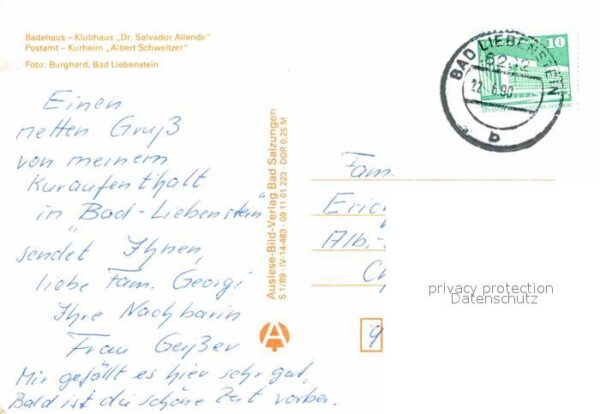 Badehaus – Klubhaus „Dr. Salvador Allende"
Postamt – Kurheim „Albert Schweitzer"
Foto: Burghard, Bad Liebenstein
Einen
netten Gruß
von meinem
Kuraufenthalt
in "Bad-Liebenstein"
sendet Ihnen,
liebe Fam. Georgi
Ihre Nachbarin
Frau Geißer
Mir gefällt es hier sehr gut.
Bald ist die schöne Zeit vorbei.
Auslese-Bild-Verlag Bad Salzungen
S 1/89 · IV-14-483 · 09 11 01 223 DDR 0,25 M
A
10
BAD LIEBENSTEIN
22.6.90
a
Fam.
Eric
Alb.-
Ch
9
privacy protection
Datenschutz